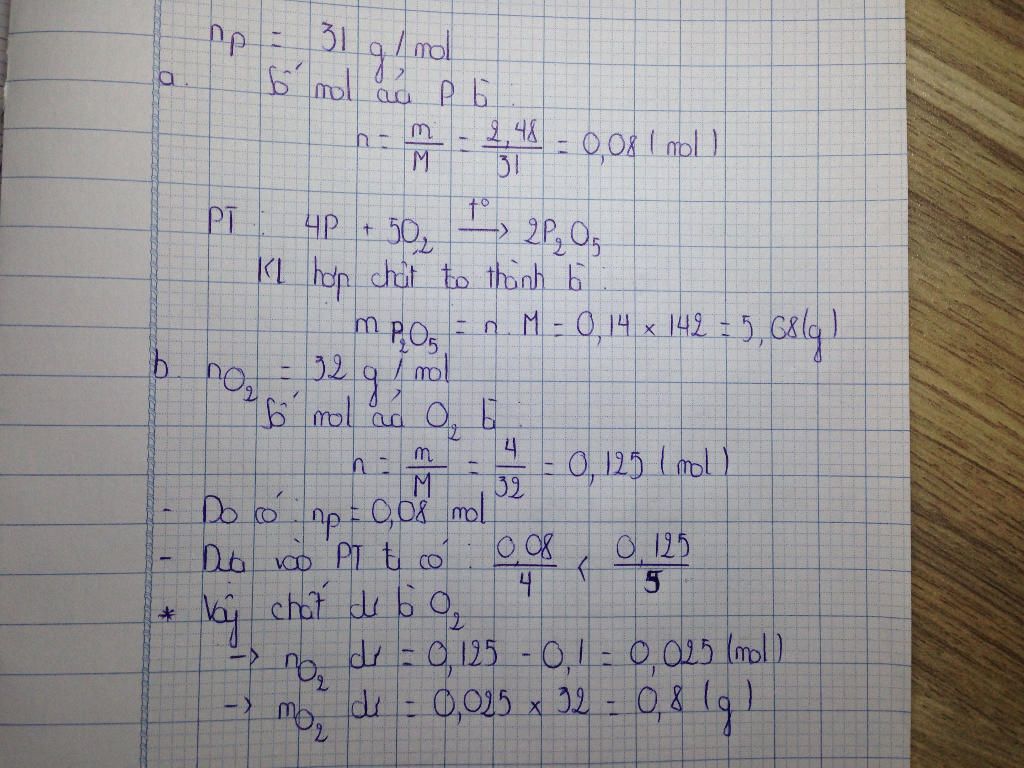 nP = 31 g/mol
a. Số mol của P là :
n = m/M = 2,48/31 = 0,08 (mol)
PT : 4P + 5O₂ —t°→ 2P₂O₅
Kl hợp chất tạo thành là :
mP₂O₅ = n . M = 0,14 × 142 = 5,68(g)
b. nO₂ = 32 g/mol
Số mol của O₂ là :
n = m/M = 4/32 = 0,125 (mol)
- Do có : nP = 0,08 mol
- Dựa vào PT ta có : 0,08/4 < 0,125/5
* Vậy chất dư là O₂
-> nO₂ dư = 0,125 - 0,1 = 0,025 (mol)
-> mO₂ dư = 0,025 × 32 = 0,8 (g)